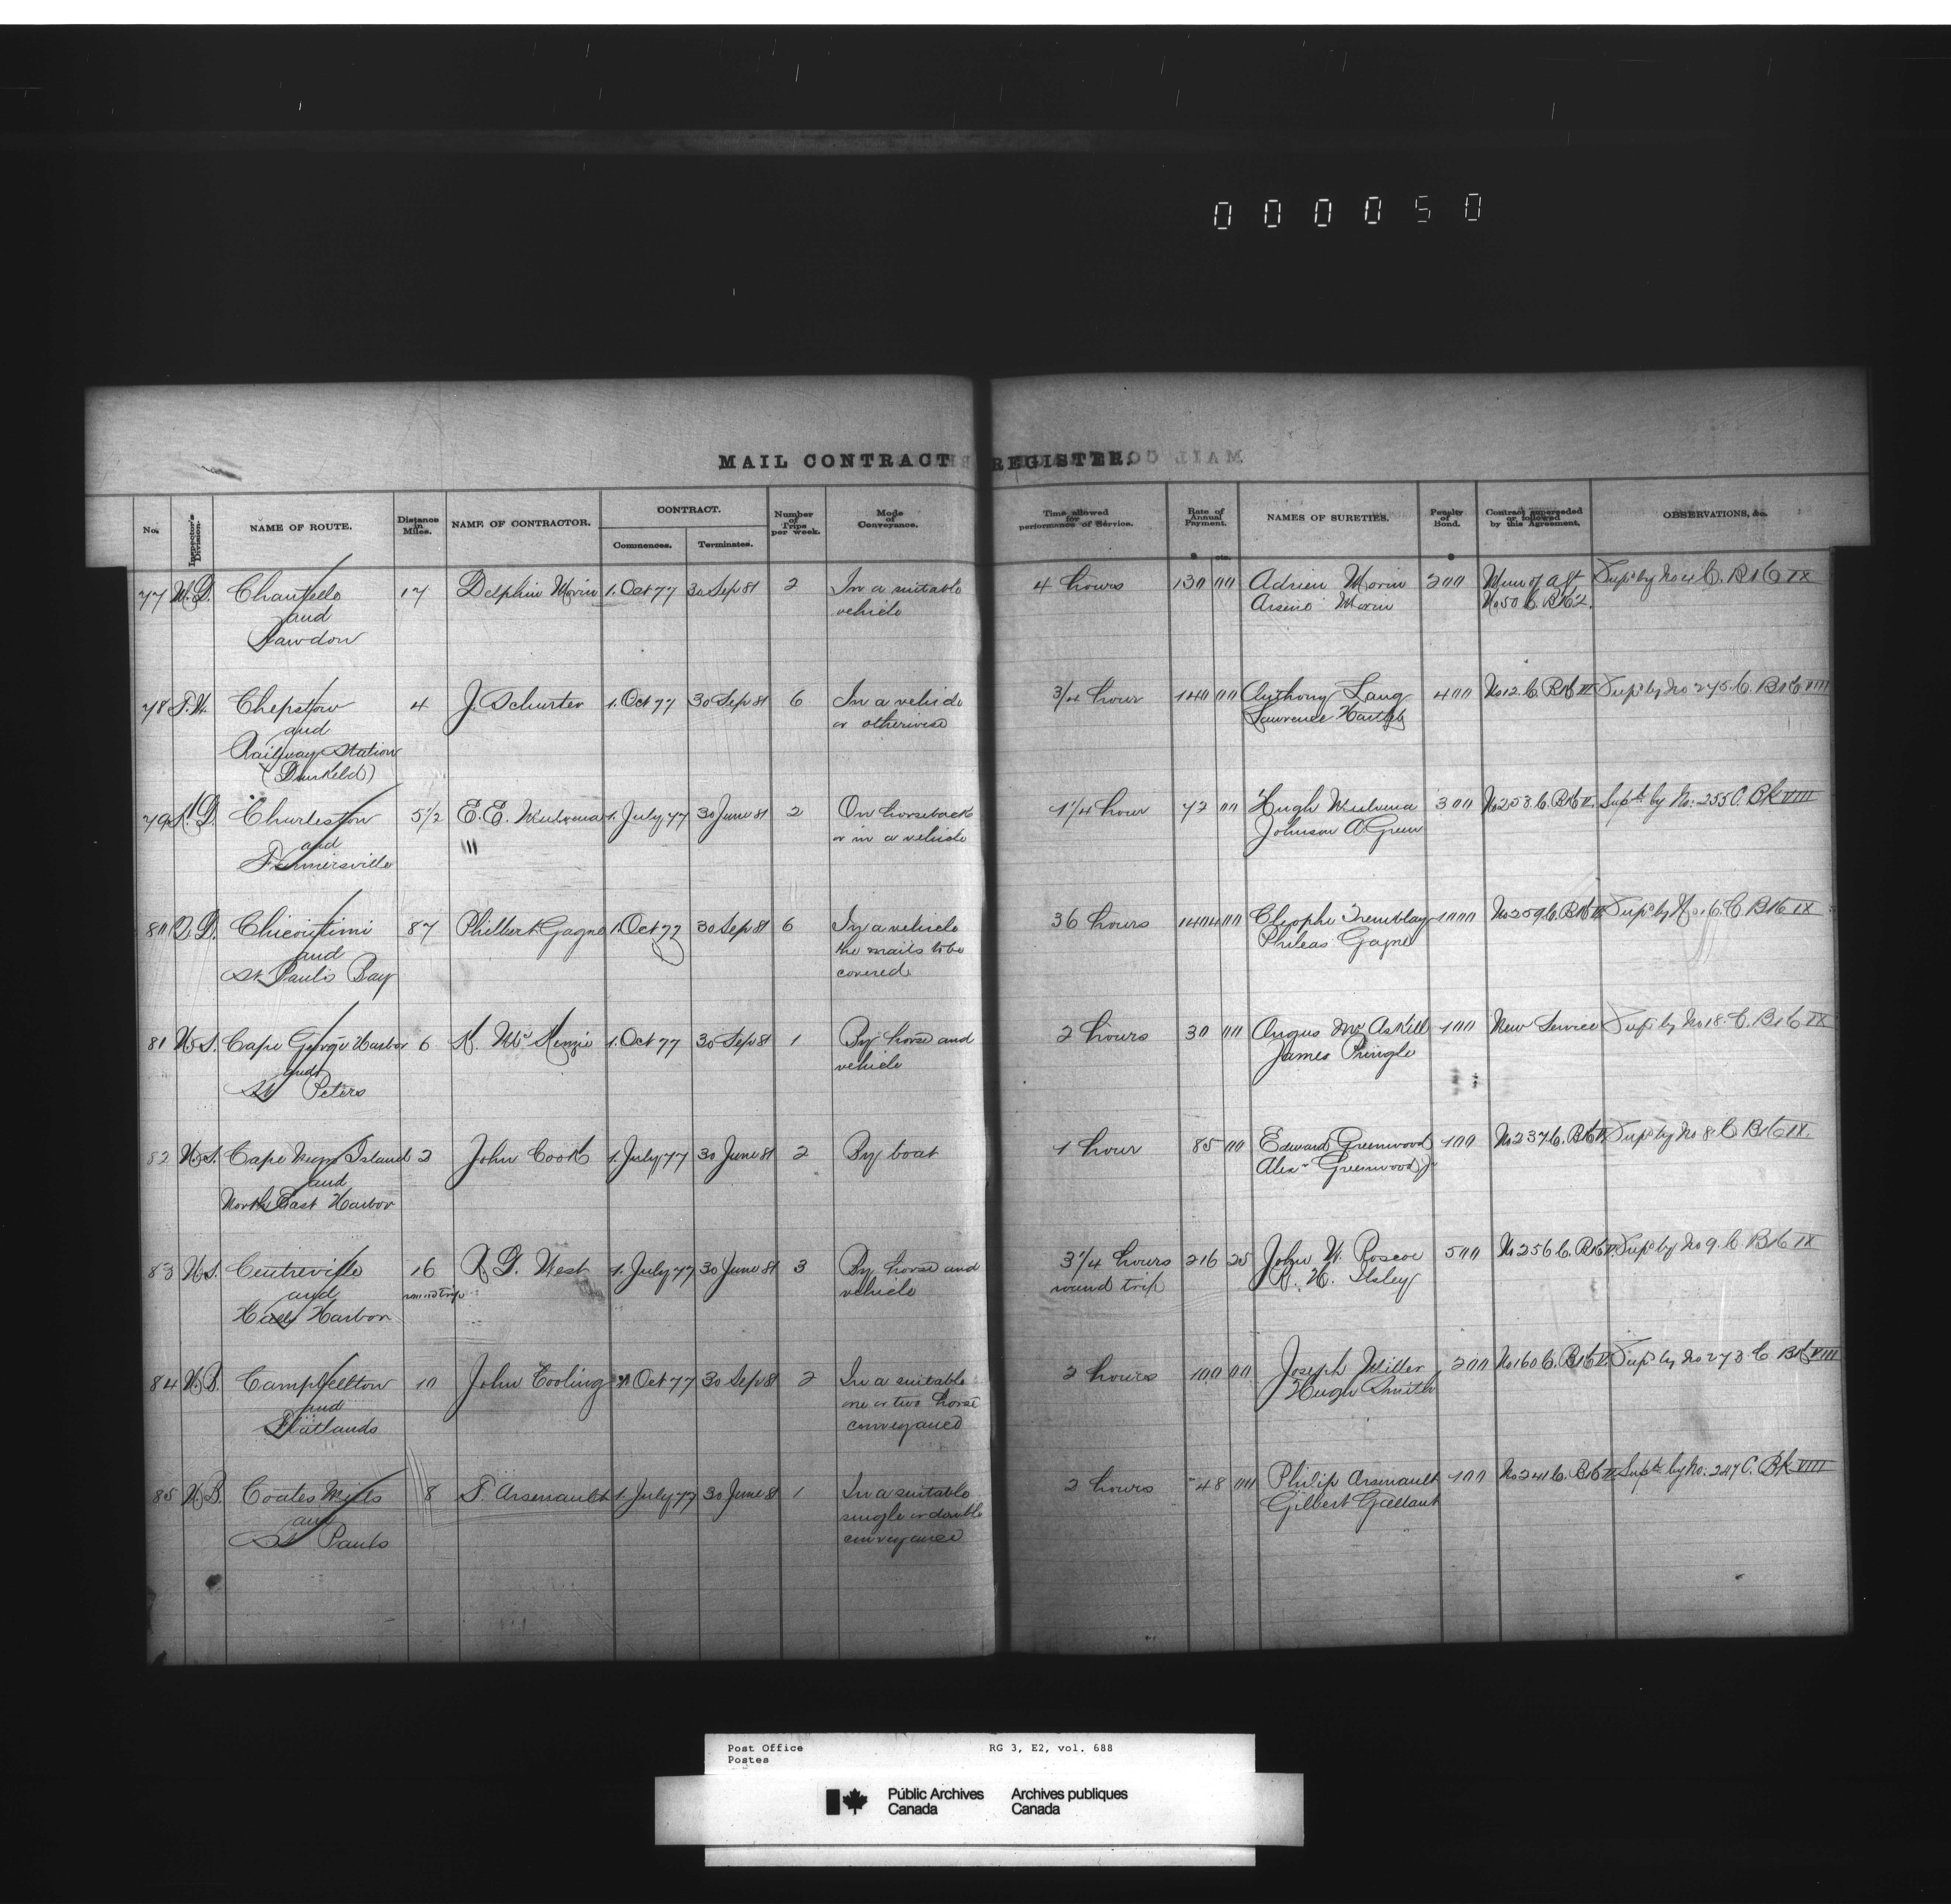 000050
MAIL CONTRACT REGISTER.
No.
Inspector's Division.
NAME OF ROUTE.
Distance in Miles.
NAME OF CONTRACTOR.
CONTRACT.
Commences.
Terminates.
Number of Trips per week.
Mode of Conveyance.
Time allowed for performance of Service.
Rate of Annual Payment.
$ cts.
NAMES OF SURETIES.
Penalty of Bond.
$
Contract superseded or followed by this Agreement.
OBSERVATIONS, &c.
77 M.D. Chertsey 17 Delphin Morin 1. Oct 77 30 Sep 81 2 In a suitable 4 hours 130 00 Adrien Morin 200 Mem of agt Sup'd by No 4 C. Bk IX
and vehicle Arsene Morin No 50 C. Bk 2.
Rawdon
78 T.W. Chepstow 4 J. Schurter 1. Oct 77 30 Sep 81 6 In a vehicle 3/4 hour 140 00 Anthony Lang 400 No 12. C. Bk VI Sup'd by No 275. C. Bk VIII
and or otherwise Lawrence Hartleb
Railway Station
(Dunkeld)
79 K.D. Charleston 5 1/2 E.E. 1. July 77 30 June 81 2 On horseback 1 1/4 hour 72 00 Hugh 300 No 253. C. Bk V. Sup'd by No: 255 C. Bk VIII
and or in a vehicle Johnson A Green
Farmersville
80 Q.D. Chicoutimi 87 Philbert Gagne 1 Oct 77 30 Sep 81 6 In a vehicle 36 hours 1404 00 Cleophe Tremblay 1000 No 259 C. Bk Sup'd by No 16. C. Bk IX
and the mails to be Phileas Gagne
St. Pauls Bay covered
81 N.S. Cape George Harbor 6 K. McKenzie 1. Oct 77 30 Sep 81 1 By horse and 2 hours 30 00 Angus McAskill 100 New Service Sup'd by No 18. C. Bk IX
and vehicle James Pringle
St Peters
82 N.S. Cape Negro Island 2 John Cook 1. July 77 30 June 81 2 By boat 1 hour 85 00 Edward Greenwood 100 No 237 C. Bk Sup'd by No 8 C Bk IX.
and Alex Greenwood Jr
North East Harbor
83 N.S. Centreville 16 R G. West 1. July 77 30 June 81 3 By horse and 3 1/4 hours 216 25 John W. Roscoe 500 No 256 C. Bk V. Sup'd by No 9. C Bk IX
and round trip vehicle round trip R. W. Ilsley
Halls Harbor
84 N.B. Campbellton 10 John Cooling 1 Oct 77 30 Sep 81 2 In a suitable 2 hours 100 00 Joseph Miller 200 No 160 C. Bk V. Sup'd by No 273 C Bk VIII
and one or two horse Hugh Smith
Flatlands conveyance
85 N.B. Coates Mills 8 T. Arsenault 1. July 77 30 June 81 1 In a suitable 2 hours 48 00 Philip Arsenault 100 No 241 C. Bk Sup'd by No: 247 C. Bk VIII
and single or double Gilbert Gallant
St Pauls conveyance
Post Office
Postes
RG 3, E2, vol. 688
Public Archives
Canada
Archives publiques
Canada